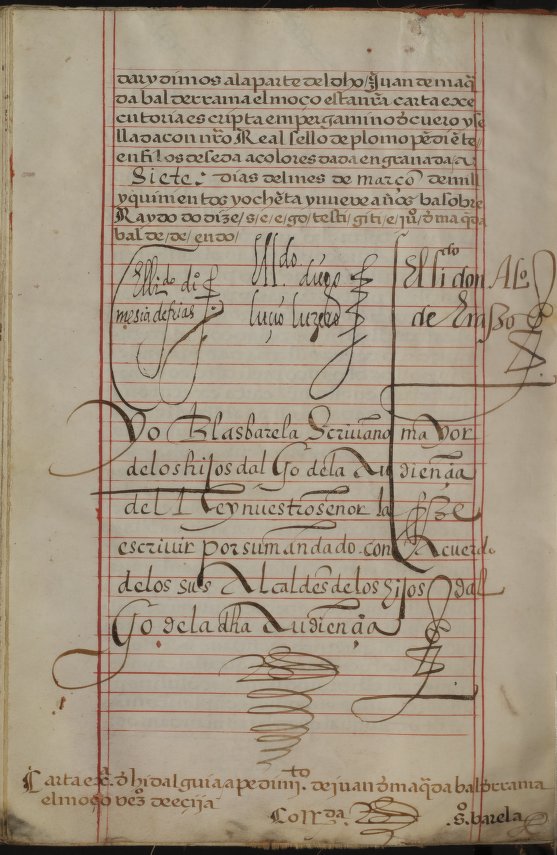 dar y dimos a la parte del dho / Juan de maq̄
da balderrama el moço esta nr̄a carta exe
cutoria escripta em pergamino ð cuero y se
llada con nr̄o Real sello de plomo pēdiēte /
en filos de seda a colores dada en granada / a
Siete: dias del mes de março de mill
y quinientos y ochēta y nueve años ba sobre
Raydo do dize / s / e / e / go / testi / giti / e / ju° / ð maq̄da
bal de / de / en do /
Ell.do diego
El li.do d°
mesia de frias
luçio luzero
El li.do don Al°
de Eraßo
Yo Blas barela Scrivano mayor
de los hijos dal Go de la Audiençia
del Rey nuestro señor la fize
escrivir por su mandado. con Acuerdo
de los sus Alcaldes de los hijos dal
Go de la dha Audiençia
Carta exē. ð hidalguia a pedimi.to de juan ð maq̄da balðrrama
el moço vez° de ecija
Corr.da
.S°. barela